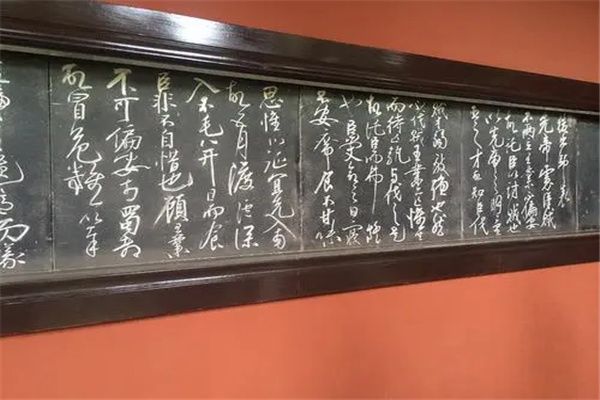 後出師表
先帝慮漢賊
不兩立王業不偏安
故託臣以討賊也
以先帝之明量
臣之才固知臣伐
賊才弱敵強也然
不伐賊王業亦亡惟坐
而待亡孰與伐之是
故託臣而弗疑
也臣受命之日寢
不安席食不甘味
思惟北征宜先入南
故五月渡瀘深
入不毛并日而食
臣非不自惜也顧王業
不可偏安於蜀都
故冒危難以奉